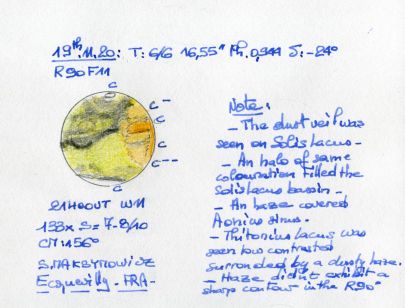 19th.11.20: T: 6/6 16,55" Ph. 0,944 S: -24°
R90F11
C
C-
C
C
C---
C
21H00UT W11
133x S= 7-8/10
CM 156°
S.MAKSYMOWICZ
Ecquevilly - FRA-
Note:
- The dust veil was
seen on Solis Lacus -
- An halo of same
colouration filled the
Solis Lacus bassin -
- An haze covered
Aonius Sinus.
- Thitonius Lacus was
seen low contrasted
surronded by a dusty haze.
- Haze didn't exhibit a
sharp contour in the R90°